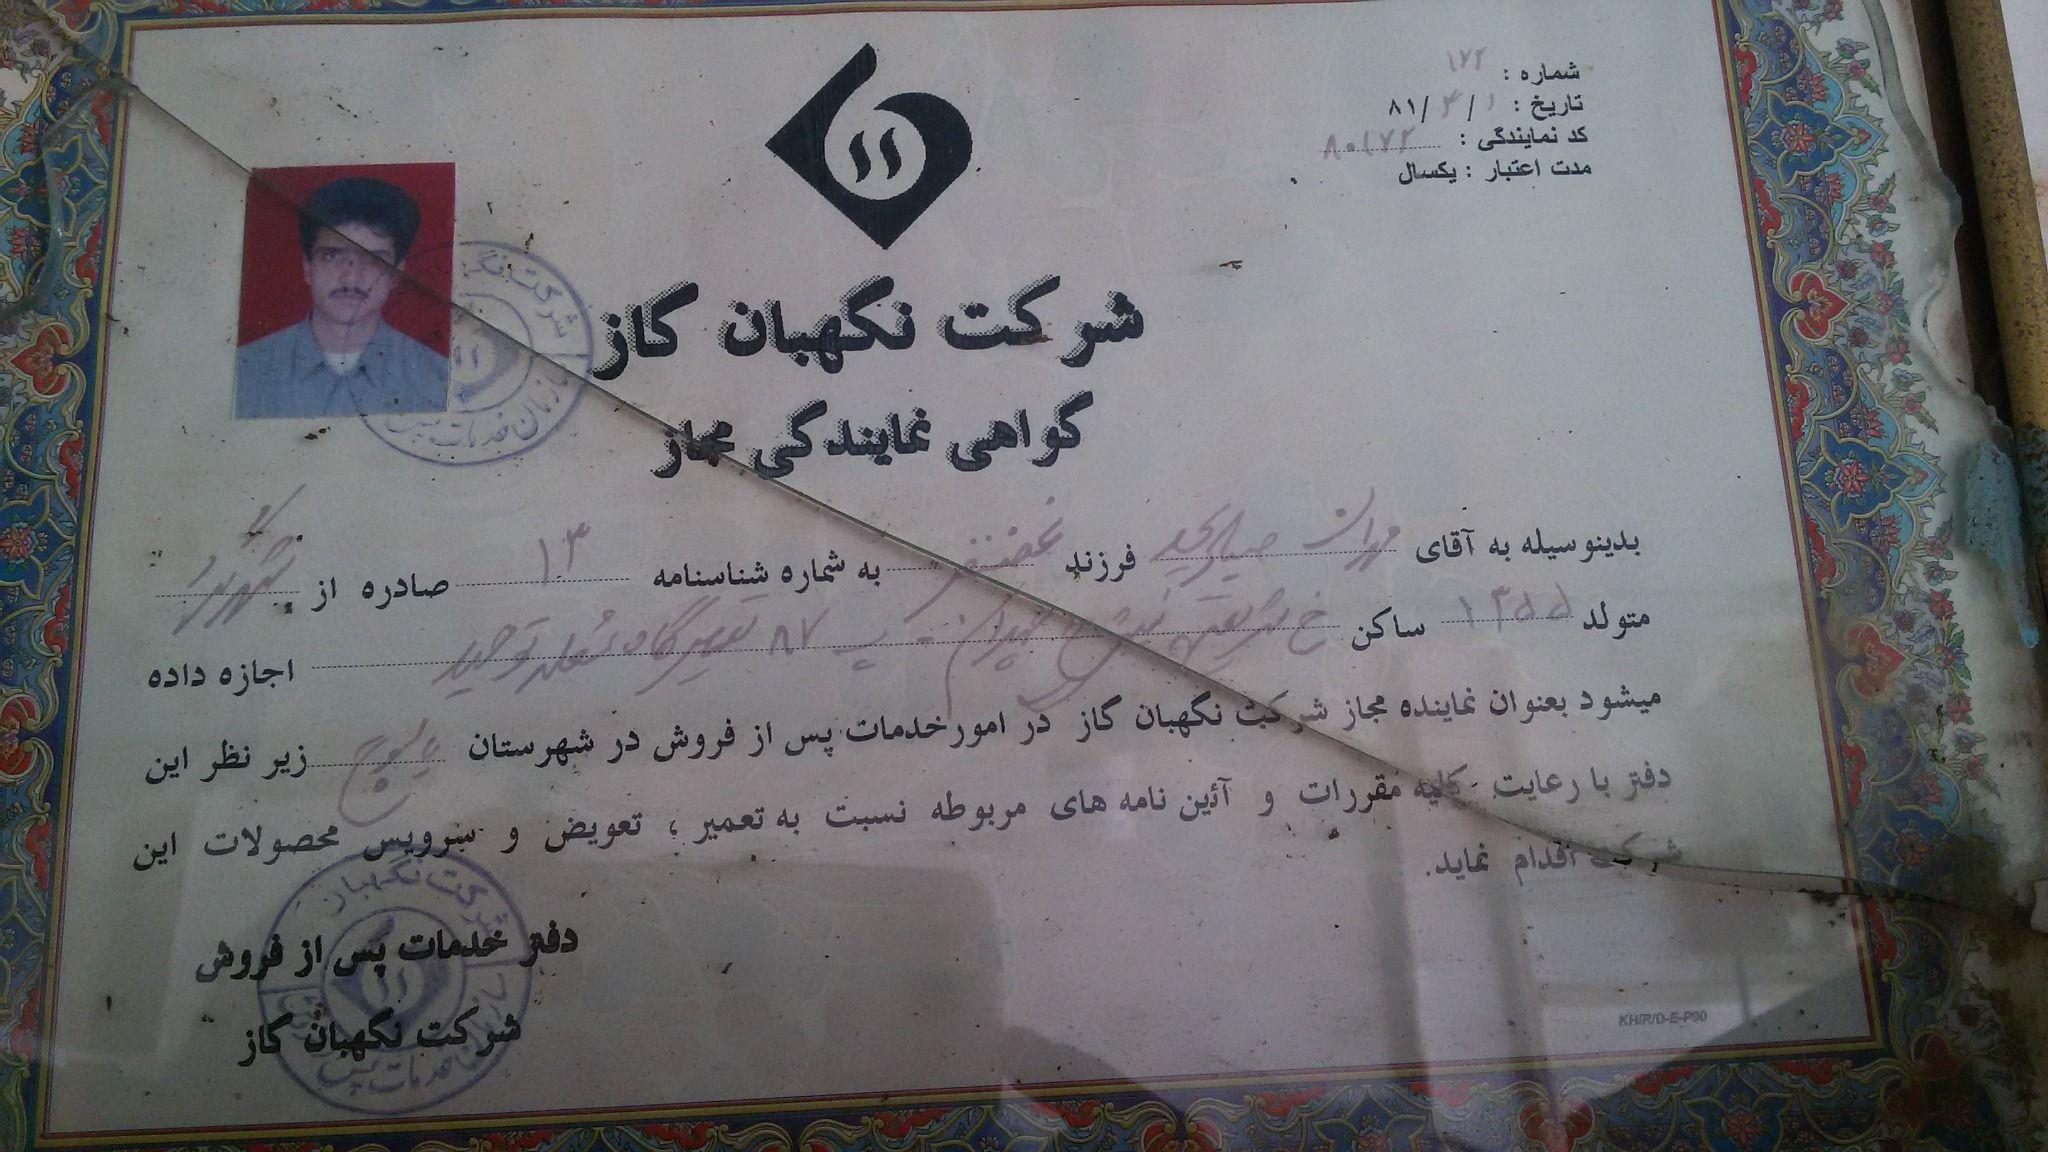 شماره : ۱۷۲
تاریخ : ۱/۳/۸۱
کد نمایندگی : ۸۰۱۷۲
مدت اعتبار : یکسال
شرکت نگهبان گاز
گواهی نمایندگی مجاز
بدینوسیله به آقای مهران فرزند غضنفر به شماره شناسنامه ۱۳ صادره از
متولد ۱۳۵۵ ساکن خ نبش پ ۸۷ تعمیرگاه توحید اجازه داده
میشود بعنوان نماینده مجاز شرکت نگهبان گاز در امور خدمات پس از فروش در شهرستان یاسوج زیر نظر این
دفتر با رعایت کلیه مقررات و آئین نامه های مربوطه نسبت به تعمیر ، تعویض و سرویس محصولات این
شرکت اقدام نماید.
دفتر خدمات پس از فروش
شرکت نگهبان گاز
KHIR/D-E-P90